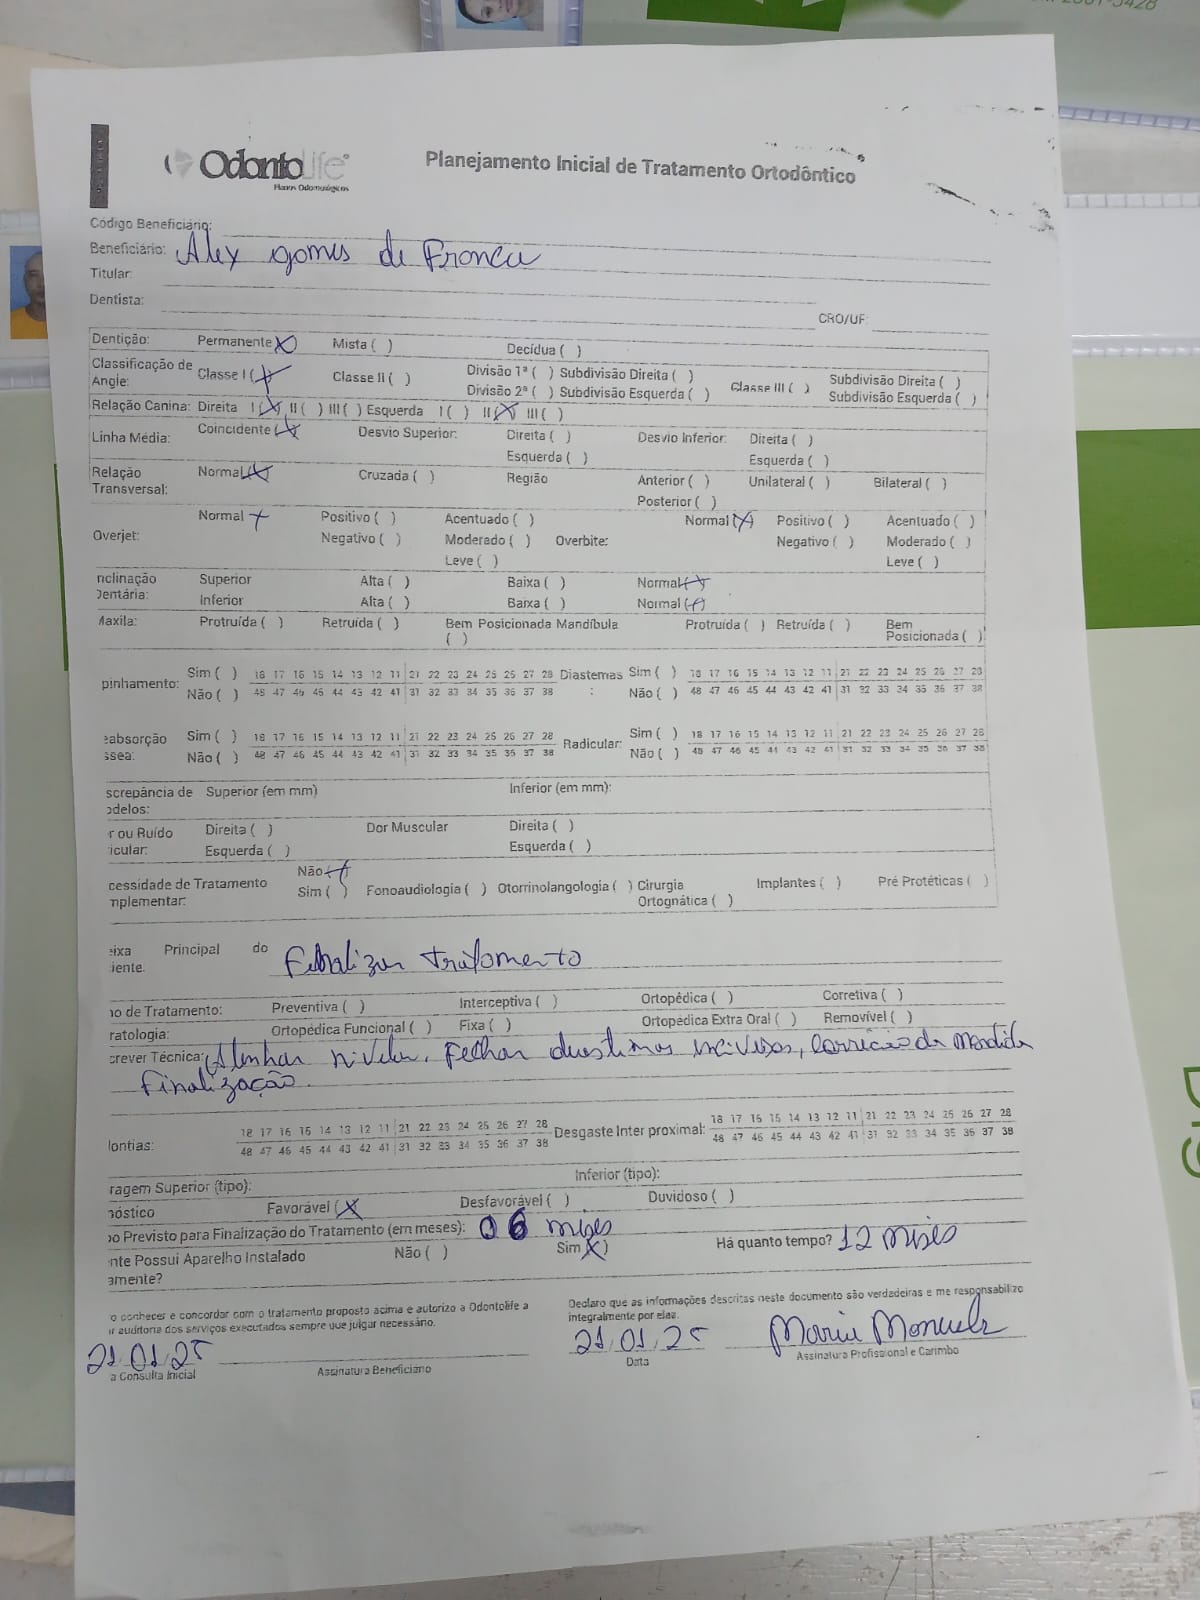 OdontoLife®
Planos Odontológicos
Planejamento Inicial de Tratamento Ortodôntico
Código Beneficiário:
Beneficiário: Alex Gomes de Franca
Titular:
Dentista: CRO/UF:
Dentição: Permanente (X) Mista ( ) Decídua ( )
Classificação de Angle: Classe I (X) Classe II ( ) Divisão 1ª ( ) Subdivisão Direita ( ) Classe III ( ) Subdivisão Direita ( )
Divisão 2ª ( ) Subdivisão Esquerda ( ) Subdivisão Esquerda ( )
Relação Canina: Direita I (X) II ( ) III ( ) Esquerda I ( ) II (X) III ( )
Linha Média: Coincidente (X) Desvio Superior: Direita ( ) Desvio Inferior: Direita ( )
Esquerda ( ) Esquerda ( )
Relação Transversal: Normal (X) Cruzada ( ) Região Anterior ( ) Unilateral ( ) Bilateral ( )
Posterior ( )
Overjet: Normal X Positivo ( ) Acentuado ( ) Overbite: Normal (X) Positivo ( ) Acentuado ( )
Negativo ( ) Moderado ( ) Negativo ( ) Moderado ( )
Leve ( ) Leve ( )
nclinação Superior Alta ( ) Baixa ( ) Normal (X)
Dentária: Inferior Alta ( ) Baixa ( ) Normal (X)
Maxila: Protruída ( ) Retruída ( ) Bem Posicionada ( ) Mandíbula Protruída ( ) Retruída ( ) Bem Posicionada ( )
pinhamento: Sim ( ) 18 17 16 15 14 13 12 11 21 22 23 24 25 26 27 28 Diastemas: Sim ( ) 18 17 16 15 14 13 12 11 21 22 23 24 25 26 27 28
Não ( ) 48 47 46 45 44 43 42 41 31 32 33 34 35 36 37 38 Não ( ) 48 47 46 45 44 43 42 41 31 32 33 34 35 36 37 38
eabsorção ssea: Sim ( ) 18 17 16 15 14 13 12 11 21 22 23 24 25 26 27 28 Radicular: Sim ( ) 18 17 16 15 14 13 12 11 21 22 23 24 25 26 27 28
Não ( ) 48 47 46 45 44 43 42 41 31 32 33 34 35 36 37 38 Não ( ) 48 47 46 45 44 43 42 41 31 32 33 34 35 36 37 38
screpância de odelos: Superior (em mm) Inferior (em mm):
r ou Ruído icular: Direita ( ) Dor Muscular Direita ( )
Esquerda ( ) Esquerda ( )
Não (X)
cessidade de Tratamento mplementar: Sim ( ) Fonoaudiologia ( ) Otorrinolangologia ( ) Cirurgia Ortognática ( ) Implantes ( ) Pré Protéticas ( )
eixa Principal do iente. Finalizar tratamento
no de Tratamento: Preventiva ( ) Interceptiva ( ) Ortopédica ( ) Corretiva ( )
ratologia: Ortopédica Funcional ( ) Fixa ( ) Ortopédica Extra Oral ( ) Removível ( )
screver Técnica: Alinhar nivelar, Fechar diastemas incisivos, correção da Mordida
Finalização.
18 17 16 15 14 13 12 11 21 22 23 24 25 26 27 28 18 17 16 15 14 13 12 11 21 22 23 24 25 26 27 28
dontias: 48 47 46 45 44 43 42 41 31 32 33 34 35 36 37 38 Desgaste Inter proximal: 48 47 46 45 44 43 42 41 31 32 33 34 35 36 37 38
ragem Superior (tipo): Inferior (tipo):
nóstico Favorável (X) Desfavorável ( ) Duvidoso ( )
po Previsto para Finalização do Tratamento (em meses): 06 meses
nte Possui Aparelho Instalado amente? Não ( ) Sim (X) Há quanto tempo? 12 meses
o conhecer e concordar com o tratamento proposto acima e autorizo a Odontolife a
r auditoria dos serviços executados sempre que julgar necessário.
Declaro que as informações descritas neste documento são verdadeiras e me responsabilizo
integralmente por elas.
21/01/25 21/01/25 Maria Manuela
a Consulta Inicial Assinatura Beneficiário Data Assinatura Profissional e Carimbo